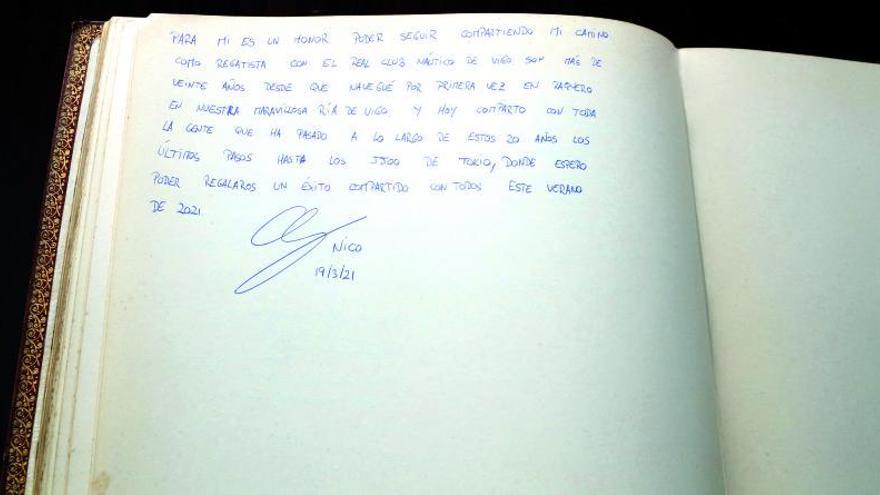 PARA MI ES UN HONOR PODER SEGUIR COMPARTIENDO MI CAMINO
COMO REGATISTA CON EL REAL CLUB NÁUTICO DE VIGO SON MÁS DE
VEINTE AÑOS DESDE QUE NAVEGUÉ POR PRIMERA VEZ EN RAQUERO
EN NUESTRA MARAVILLOSA RÍA DE VIGO Y HOY COMPARTO CON TODA
LA GENTE QUE HA PASADO A LO LARGO DE ESTOS 20 AÑOS LOS
ÚLTIMOS PASOS HASTA LOS JJOO DE TOKIO, DONDE ESPERO
PODER REGALAROS UN ÉXITO COMPARTIDO CON TODOS ESTE VERANO
DE 2021
NICO
19/3/21